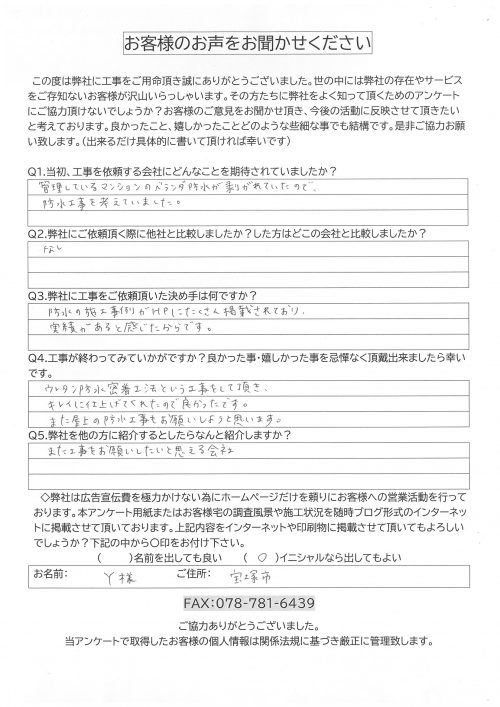 お客様のお声をお聞かせください
この度は弊社に工事をご用命頂き誠にありがとうございました。世の中には弊社の存在やサービス
をご存知ないお客様が沢山いらっしゃいます。その方たちに弊社をよく知って頂くためのアンケート
にご協力頂けないでしょうか？お客様のご意見をお聞かせ頂き、今後の活動に反映させて頂きたい
と考えております。良かったこと、嬉しかったことどのような些細な事でも結構です。是非ご協力お願
い致します。（出来るだけ具体的に書いて頂ければ幸いです）
Q1.当初、工事を依頼する会社にどんなことを期待されていましたか？
管理しているマンションのベランダ防水が剥がれていたので、
防水工事を考えていました。
Q2.弊社にご依頼頂く際に他社と比較しましたか？した方はどこの会社と比較しましたか？
なし
Q3.弊社に工事をご依頼頂いた決め手は何ですか？
防水の施工事例がHPにたくさん掲載されており、
実績があると感じたからです。
Q4.工事が終わってみていかがですか？良かった事・嬉しかった事を忌憚なく頂戴出来ましたら幸い
です。
ウレタン防水密着工法という工事をして頂き、
キレイに仕上げてくれたので良かったです。
また屋上の防水工事もお願いしようと思います。
Q5.弊社を他の方に紹介するとしたらなんと紹介しますか？
また工事をお願いしたいと思える会社
◇弊社は広告宣伝費を極力かけない為にホームページだけを頼りにお客様への営業活動を行って
おります。本アンケート用紙またはお客様宅の調査風景や施工状況を随時ブログ形式のインターネッ
トに掲載させて頂いております。上記内容をインターネットや印刷物に掲載させて頂いてもよろしい
でしょうか？下記の中から〇印をお付け下さい。
（　　）名前を出しても良い　（ 〇 ）イニシャルなら出してもよい
お名前：　Y様　ご住所：　宝塚市
FAX:078-781-6439
ご協力ありがとうございました。
当アンケートで取得したお客様の個人情報は関係法規に基づき厳正に管理致します。